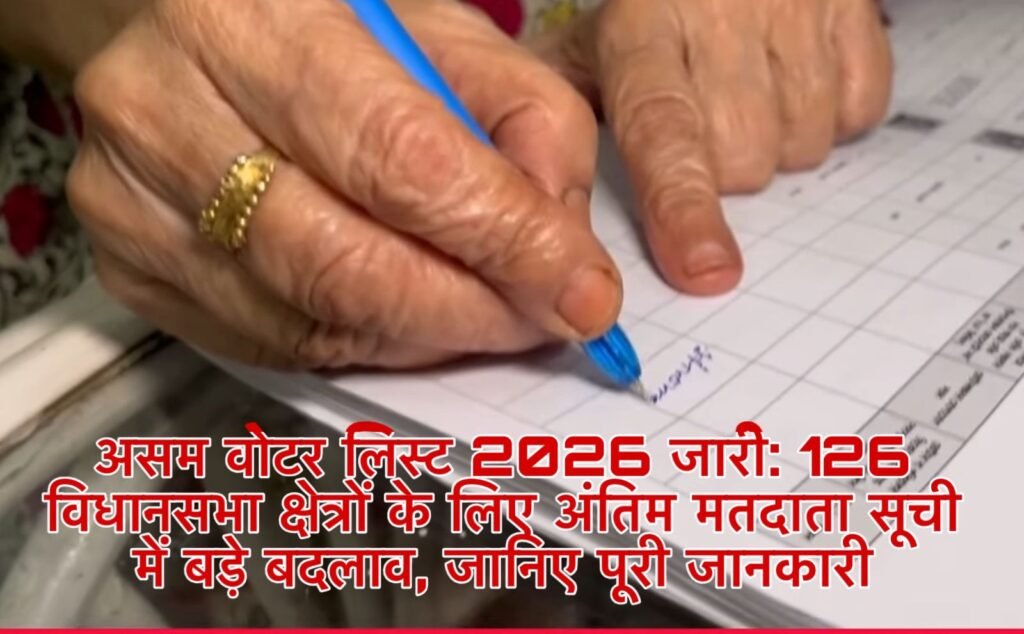 असम वोटर लिस्ट 2026 जारी: 126
विधानसभा क्षेत्रों के लिए अंतिम मतदाता सूची
में बड़े बदलाव, जानिए पूरी जानकारी